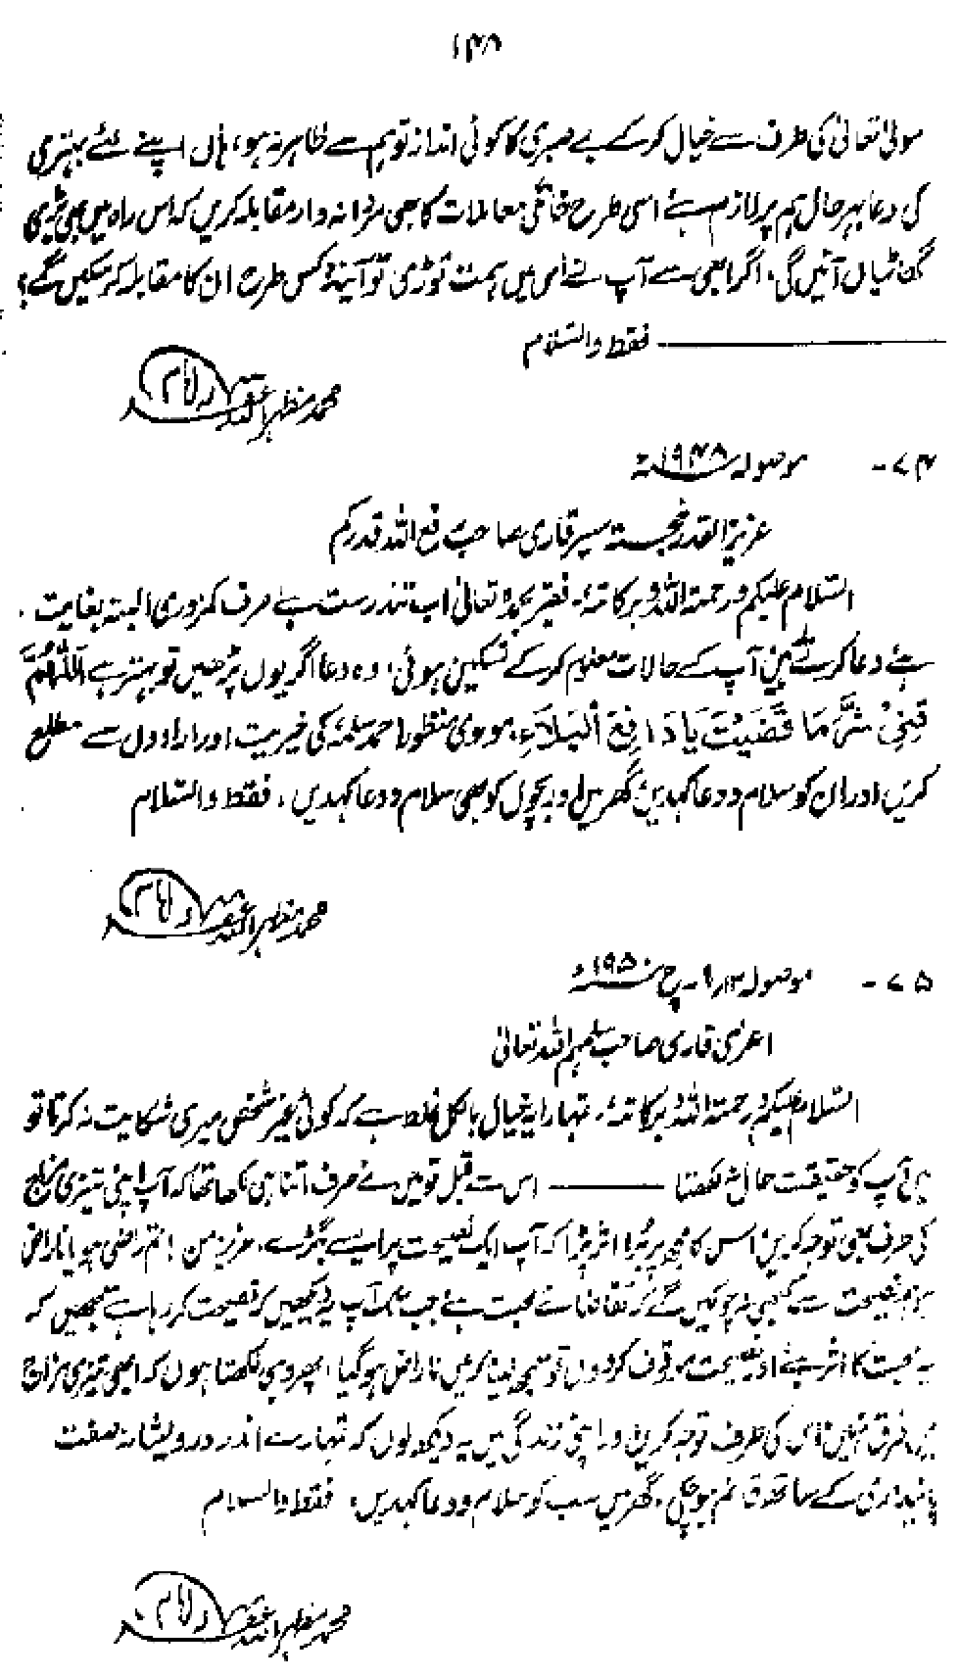 ۱۴۸
مولیٰ تعالیٰ کی طرف سے خیال کر کے بے صبری کا کوئی انداز تو ہم سے ظاہر نہ ہو، ہاں اپنے لئے بہتری
کی دعا بہر حال ہم پر لازم ہے اسی طرح خانگی معاملات کا بھی مردانہ وار مقابلہ کریں کہ اس راہ میں بھی بڑی
گھاٹیاں آئیں گی، اگر ابھی سے آپ نے اس میں ہمت توڑ دی تو آئندہ کس طرح ان کا مقابلہ کر سکیں گے؟
فقط والسّلام
محمد مظہر اللہ
۷۴- موصولہ ۱۹۴۸ء
عزیز القدر خجستہ سیر قاری صاحب رفع اللہ قدرکم
السّلام علیکم ورحمۃ اللہ وبرکاتہٗ۔ فقیر بحمدہٖ تعالیٰ اب تندرست ہے صرف کمزوری البتہ بغایت
ہے دعا کرتے رہیں آپ کے حالات معلوم کر کے تسکین ہوئی، وہ دعا اگر یوں پڑھیں تو بہتر ہے اَللّٰهُمَّ
قِنِیْ شَرَّ مَا قَضَیْتَ یَا دَافِعَ الْبَلَاءِ، مولوی منظور احمد سلمہٗ کی خیریت اور ارادوں سے مطلع
کریں اور ان کو سلام و دعا کہدیں گھر میں اور بچوں کو بھی سلام و دعا کہدیں، فقط والسّلام
محمد مظہر اللہ
۷۵- موصولہ ۱۹۵۰ء
اعزی قاری صاحب سلمہم اللہ تعالیٰ
السّلام علیکم ورحمۃ اللہ وبرکاتہٗ۔ تمہارا یہ خیال بالکل غلط ہے کہ کوئی غیر شخص میری شکایت نہ کرتا تو
میں آپ کو حقیقت حال نہ لکھتا اس سے قبل تو میں نے صرف اتنا ہی لکھا تھا کہ آپ اپنی تیزی مزاج
کی طرف بھی توجہ کریں اس کا مجھ پر بُرا اثر پڑا کہ آپ ایک نصیحت پر ایسے بگڑے، عزیز من! تم راضی ہو یا ناراض
ہو ہم نصیحت سے کبھی نہ چوکیں گے کہ تقاضائے محبت ہے جب تک آپ یہ دیکھیں کہ نصیحت کر رہا ہے سمجھیں کہ
یہ محبت کا اثر ہے اور نصیحت موقوف کر دوں تو سمجھ لینا کہ میں ناراض ہو گیا، پھر وہی لکھتا ہوں کہ ابھی تیزی مزاج
میں فرق نہیں اس کی طرف توجہ کریں اور اپنی زندگی میں یہ دیکھ لوں کہ تمہارے اندر درویشانہ صفت
پائیداری کے ساتھ قائم ہو چکی، گھر میں سب کو سلام و دعا کہدیں، فقط والسلام
محمد مظہر اللہ